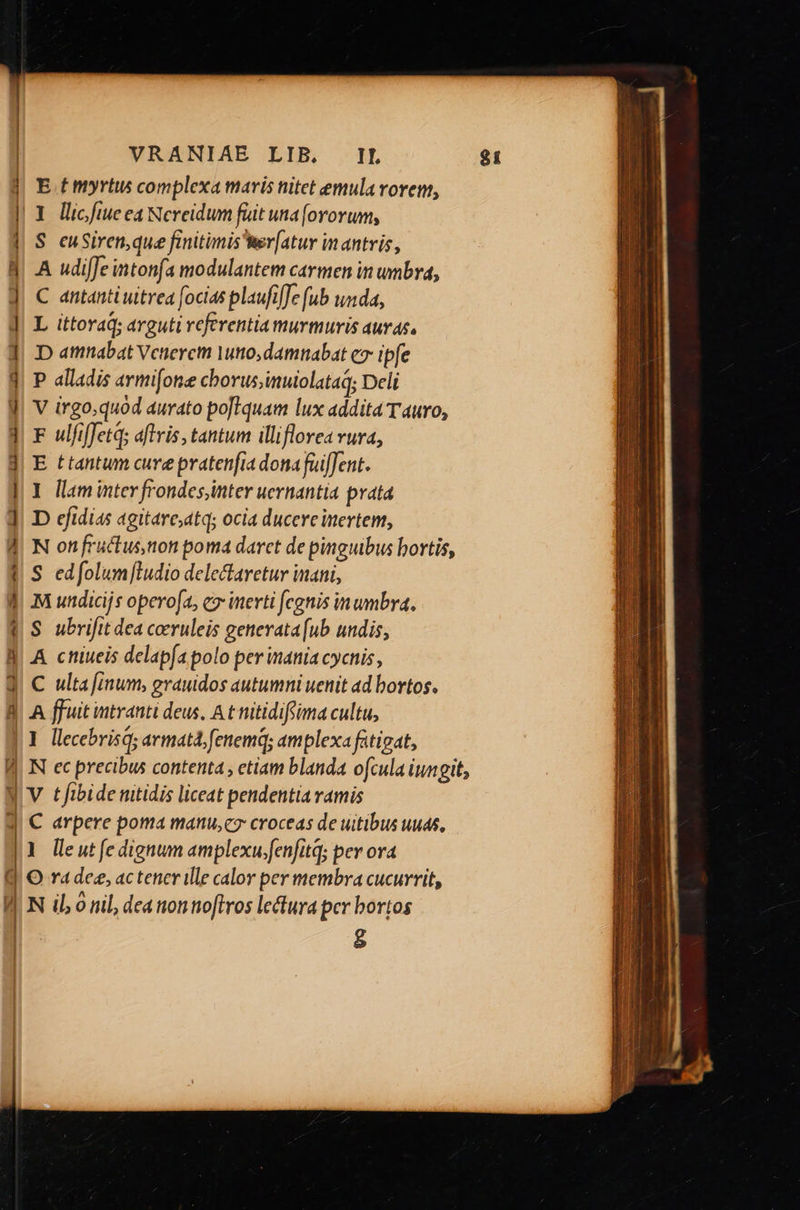 VRANIAE LIB. II. 81
E t myrtus complexa maris nitet æmula rorem,
I llic, ſiue ea Nereidum fuit una ſororum,
S eu Siren, quæ finitimis uerſatur in antris,
A udiſſe intonſa modulantem carmen in umbra,
C antanti uitrea ſocias plauſiſſe ſub unda,
L ittoraq; arguti referentia murmuris auras.
D amnabat Venerem Iuno, damnabat & ipſe
P alladis armiſonæ chorus, inuiolataq; Deli
V irgo, quòd aurato poſtquam lux addita Tauro,
F ulſiſſetq; aſtris, tantum illi florea rura,
E t tantum curæ pratenſia dona fuiſſent.
I llam inter frondes, inter uernantia prata
D eſidias agitare, atq; ocia ducere inertem,
N on fructus, non poma daret de pinguibus hortis,
S ed ſolum ſtudio delectaretur inani,
M undicijs operoſa, & inerti ſegnis in umbra.
S ubriſit dea cœruleis generata ſub undis,
A c niueis delapſa polo per inania cycnis,
C ulta ſinum, grauidos autumni uenit ad hortos.
A ffuit intranti deus. At nitidiſſima cultu,
I llecebrisq; armatá, ſenemq; amplexa fatigat,
N ec precibus contenta, etiam blanda oſcula iungit,
V t ſibi de nitidis liceat pendentia ramis
C arpere poma manu, & croceas de uitibus uuas.
I lle ut ſe dignum amplexu, ſenſitq; per ora
O ra deæ, ac tener ille calor per membra cucurrit,
N il, ô nil, dea non noſtros lectura per hortos
g